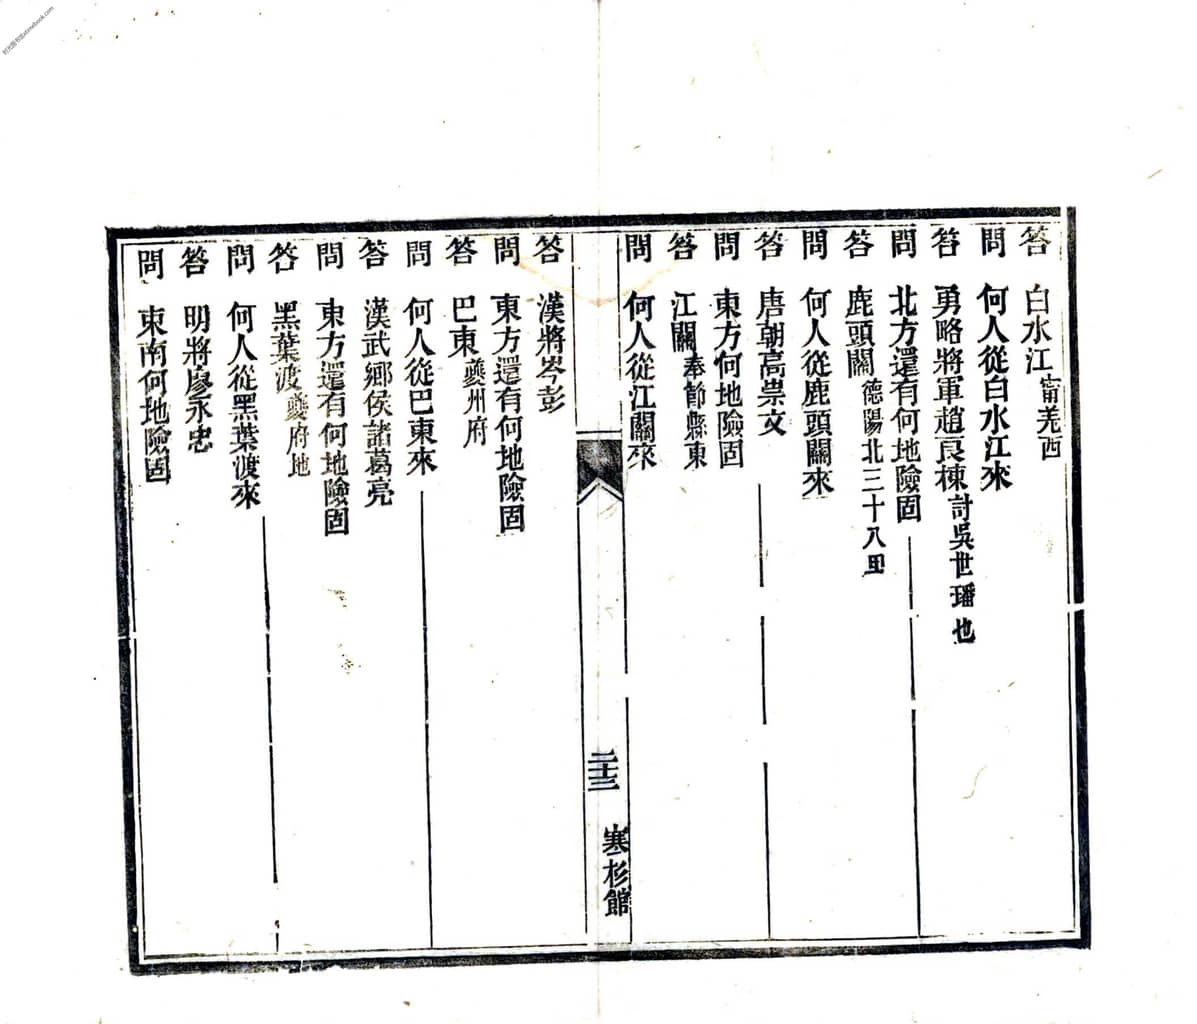 答 白水江 甯羌西
問 何人從白水江來
答 勇略將軍趙良棟 討吳世璠也
問 北方還有何地險固
答 鹿頭關 德陽北三十八里
問 何人從鹿頭關來
答 唐朝高崇文
問 東方何地險固
答 江關 奉節縣東
問 何人從江關來
二十三 寒杉館
答 漢將岑彭
問 東方還有何地險固
答 巴東 夔州府
問 何人從巴東來
答 漢武鄉侯諸葛亮
問 東方還有何地險固
答 黑葉渡 夔府地
問 何人從黑葉渡來
答 明將廖永忠
問 東南何地險固